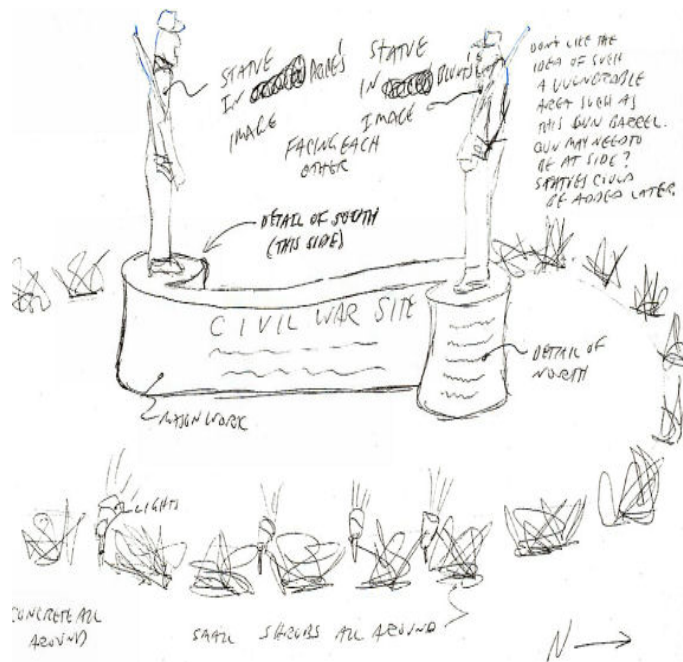 STATUE
IN
IMAGE
STATUE
IN BLUNT'S
IMAGE
FACING EACH
OTHER
DON'T LIKE THE
IDEA OF SUCH
A VULNERABLE
AREA SUCH AS
THIS GUN BARREL.
GUN MAY NEED TO
BE AT SIDE?
STATUES COULD
BE ADDED LATER.
DETAIL OF SOUTH
(THIS SIDE)
CIVIL WAR SITE
DETAIL OF
NORTH
MASON WORK
LIGHTS
CONCRETE ALL
AROUND
SMALL SHRUBS ALL AROUND
N